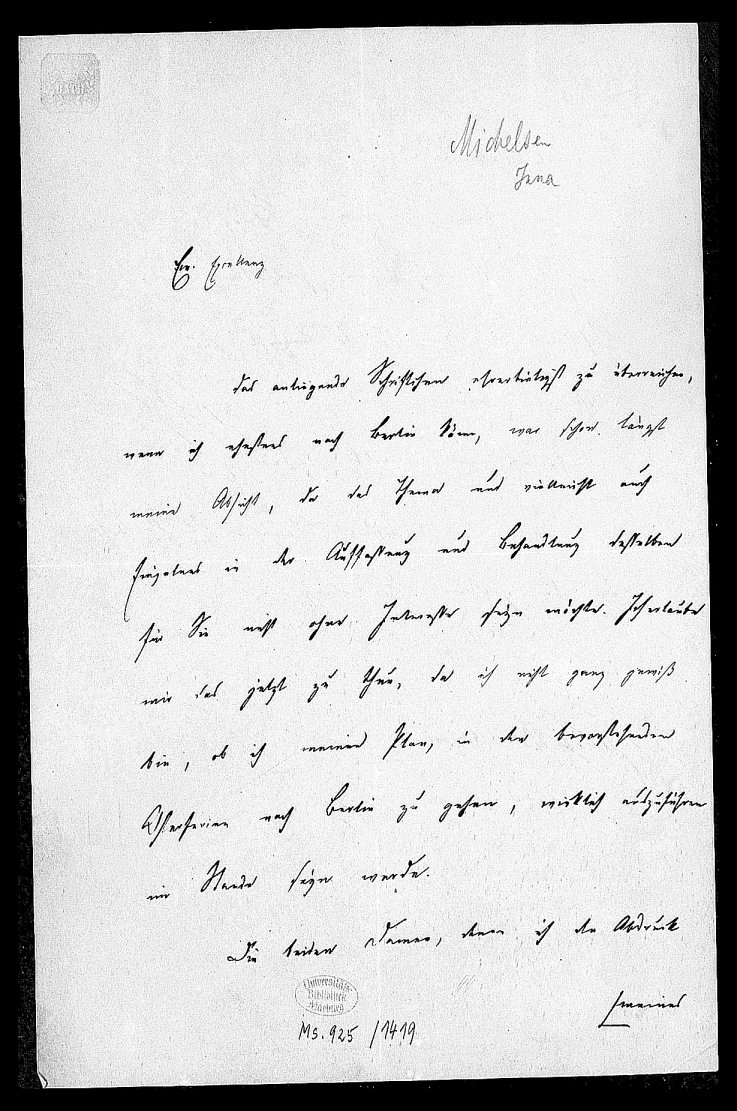 Michelsen
Jena
Ew. Excellenz
das anliegende Schriftchen ehrerbietigst zu überreichen,
wenn ich ehestens nach Berlin käme, war schon längst
meine Absicht, da das Thema und vielleicht auch
Einzelnes in der Auffassung und Behandlung desselben
für Sie nicht ohne Interesse seyn möchte. Ich erlaube
mir das jetzt zu thun, da ich nicht ganz gewiß
bin, ob ich meinen Plan, in den bevorstehenden
Osterferien nach Berlin zu gehen, wirklich auszuführen
im Stande seyn werde.
Die beiden Damen, denen ich den Abdruck
meines
Universitäts-
Bibliothek
Marburg
Ms. 925/1419